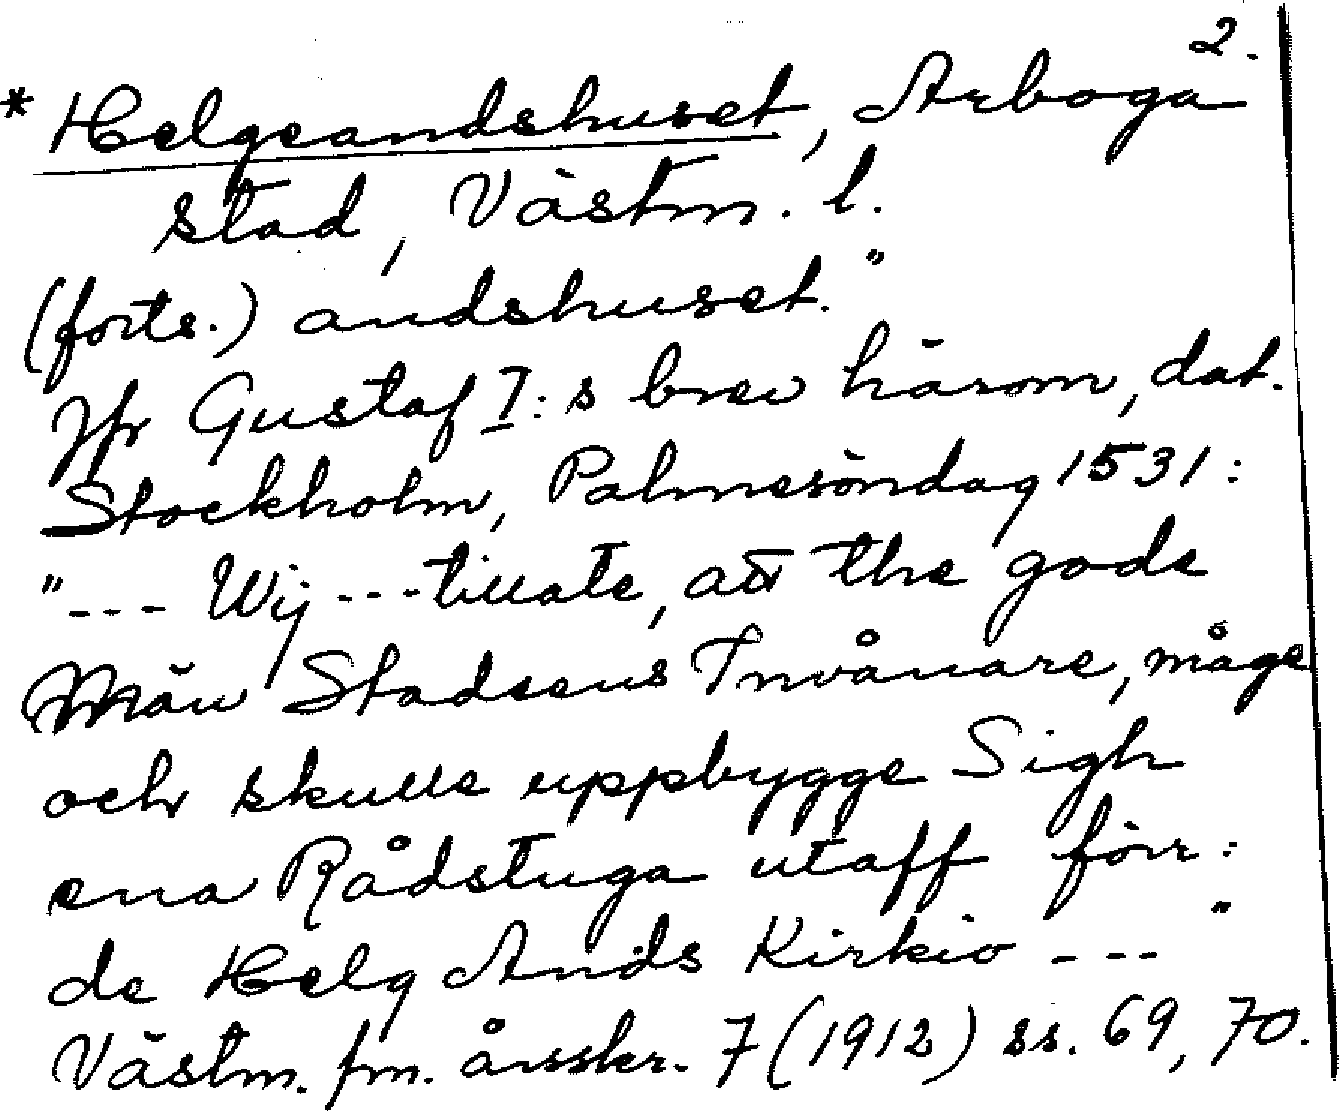 2.
* Helgeandshuset, Arboga
stad, Västm. l.
(forts.) andshuset."
Jfr Gustaf I:s brev härom, dat.
Stockholm, Palmesöndag 1531:
"--- Wij ---tillate, att the gode
Män Stadsens Invånare, måge
och skulle uppbygge Sigh
ena Rådstuga utaff förr:
de Helg Ands Kirkio ---"
Västm. fm. årsskr. 7 (1912) ss. 69, 70.